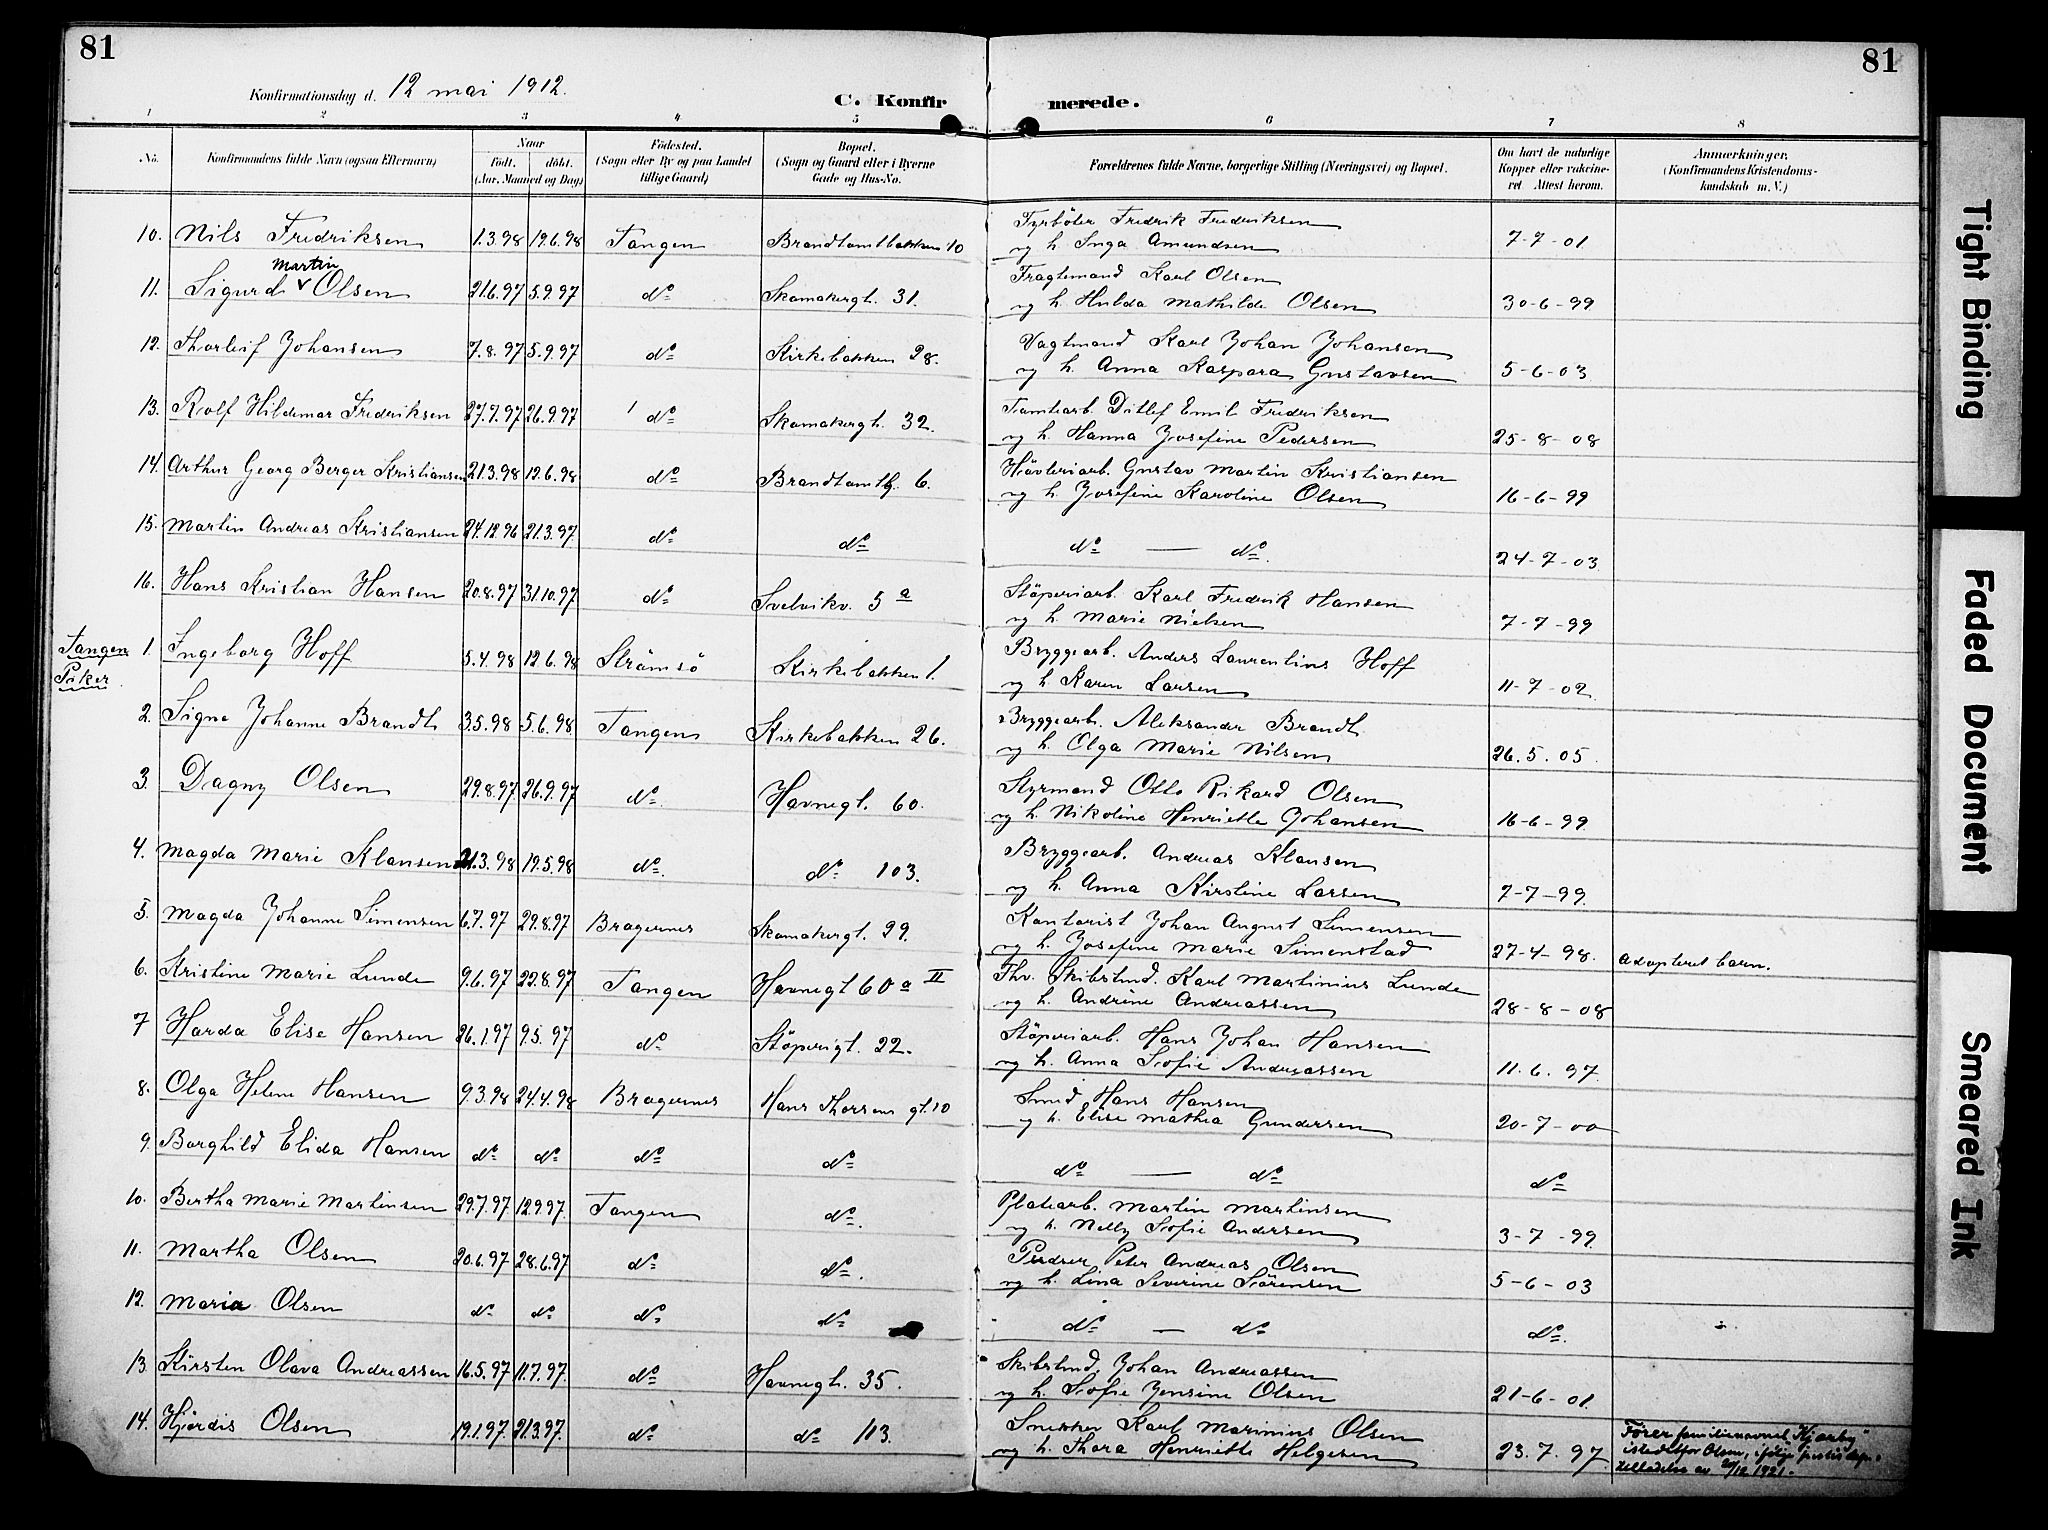 81
81
Konfirmationsdag d. 12 mai 1912.
C. Konfir merede.
1 2 3 4 5 6 7 8
No.
Konfirmandens fulde Navn (ogsaa Efternavn)
Naar
födt. döbt.
(Aar, Maaned og Dag)
Födested.
(Sogn eller By og paa Landet
tillige Gaard)
Bopæl.
(Sogn og Gaard eller i Byerne
Gade og Hus-No.
Forældrenes fulde Navne, borgerlige Stilling (Næringsvei) og Bopæl.
Om havt de naturlige
Kopper eller vakcine-
ret. Attest herom.
Anmærkninger.
(Konfirmandens Kristendoms-
kundskab m. V.)
10. Nils Fredriksen 1.3.98 19.6.98 Tangen Brandtomtbakken 10 Fyrböter Fredrik Fredriksen
og h. Inga Amundsen 7-7-01
11. Sigurd Martin Olsen 21.6.97 5.9.97 do Skomakergt. 31. Fragtemand Karl Olsen
og h. Hulda Mathilde Olsen 30-6-99
12. Thorleif Johansen 7.8.97 5.9.97 do Kirkebakken 28. Vagtmand Karl Johan Johansen
og h. Anna Kaspara Gustavsen 5-6-03
13. Rolf Hildemar Fredriksen 27.7.97 26.9.97 do Skomakergt. 32. Tomtearb. Ditlef Emil Fredriksen
og h. Hanna Josefine Pedersen 25-8-08
14. Arthur Georg Berger Kristiansen 21.3.98 12.6.98 do Brandtomtg. 6. Hövleriarb. Gustav Martin Kristiansen
og h. Josefine Karoline Olsen 16-6-99
15. Martin Andreas Kristiansen 24.12.96 21.3.97 do do do — do. 24-7-03
16. Hans Kristian Hansen 20.8.97 31.10.97 do Svelvikv. 5 a Stöperiarb. Karl Fredrik Hansen
og h. Marie Nielsen 7-7-99
Tangen
Piker
1. Ingeborg Hoff 5.4.98 12.6.98 Strömsö Kirkebakken 1. Bryggearb. Anders Laurentius Hoff
og h. Karen Larsen 11-7-02
2. Signe Johanne Brandt 3.5.98 5.6.98 Tangen Kirkebakken 26. Bryggearb. Aleksander Brandt
og h. Olga Marie Nilsen 26.5.05.
3. Dagny Olsen 29.8.97 26.9.97 do. Havnegt. 60. Styrmand Otto Rikard Olsen
og h. Nikoline Henriette Johansen 16-6-99
4. Magda Marie Klausen 21.3.98 19.5.98 do. do 103. Bryggearb. Andreas Klausen
og h. Anna Kirstine Larsen 7-7-99
5. Magda Johanne Simensen 6.7.97 29.8.97 Bragernes Skomakergt. 99. Kontorist Johan August Simensen
og h. Josefine Marie Simenstad 27-4-98. Adopteret barn.
6. Kristine Marie Lunde 9.6.97 22.8.97 Tangen Havnegt 60 a II Fhv. Skibstmd. Karl Martinius Lunde
og h. Andrine Andreassen 28-8-08
7 Harda Elise Hansen 26.1.97 9.5.97 do Stöperigt. 22. Stöperiarb. Hans Johan Hansen
og h. Anna Sofie Andreassen 11.6.97
8. Olga Helene Hansen 9.3.98 24.4.98 Bragernes Hans Thorsens gt. 10 Smed Hans Hansen
og h. Elise Mathea Gundersen 20-7-00
9. Borghild Elida Hansen do do do do do — do do
10. Bertha Marie Martinsen 29.7.97 12.9.97. Tangen do. Platearb. Martin Martinsen
og h. Nelly Sofie Andersen 3-7-99
11. Martha Olsen 20.6.97 28.6.97 do do. Pudser Peter Andreas Olsen
og h. Lina Severine Sörensen 5-6-03
12. Maria Olsen do do do do do — do do.
13. Kirsten Olava Andreassen 16.5.97 11.7.97. do Havnegt. 35. Skibstmd. Johan Andreassen
og h. Sofie Jensine Olsen 21-6-01
14. Hjördis Olsen 19.1.97 21.3.97. do do 113. Snekker Karl Marinius Olsen
og h. Thora Henriette Helgesen 23.7.97 Fører familienavnet "Hjarby"
istedetfor Olsen, ifølge justisdep.
tilladelse av 20/12 1921.
Tight Binding
Faded Document
Smeared Ink